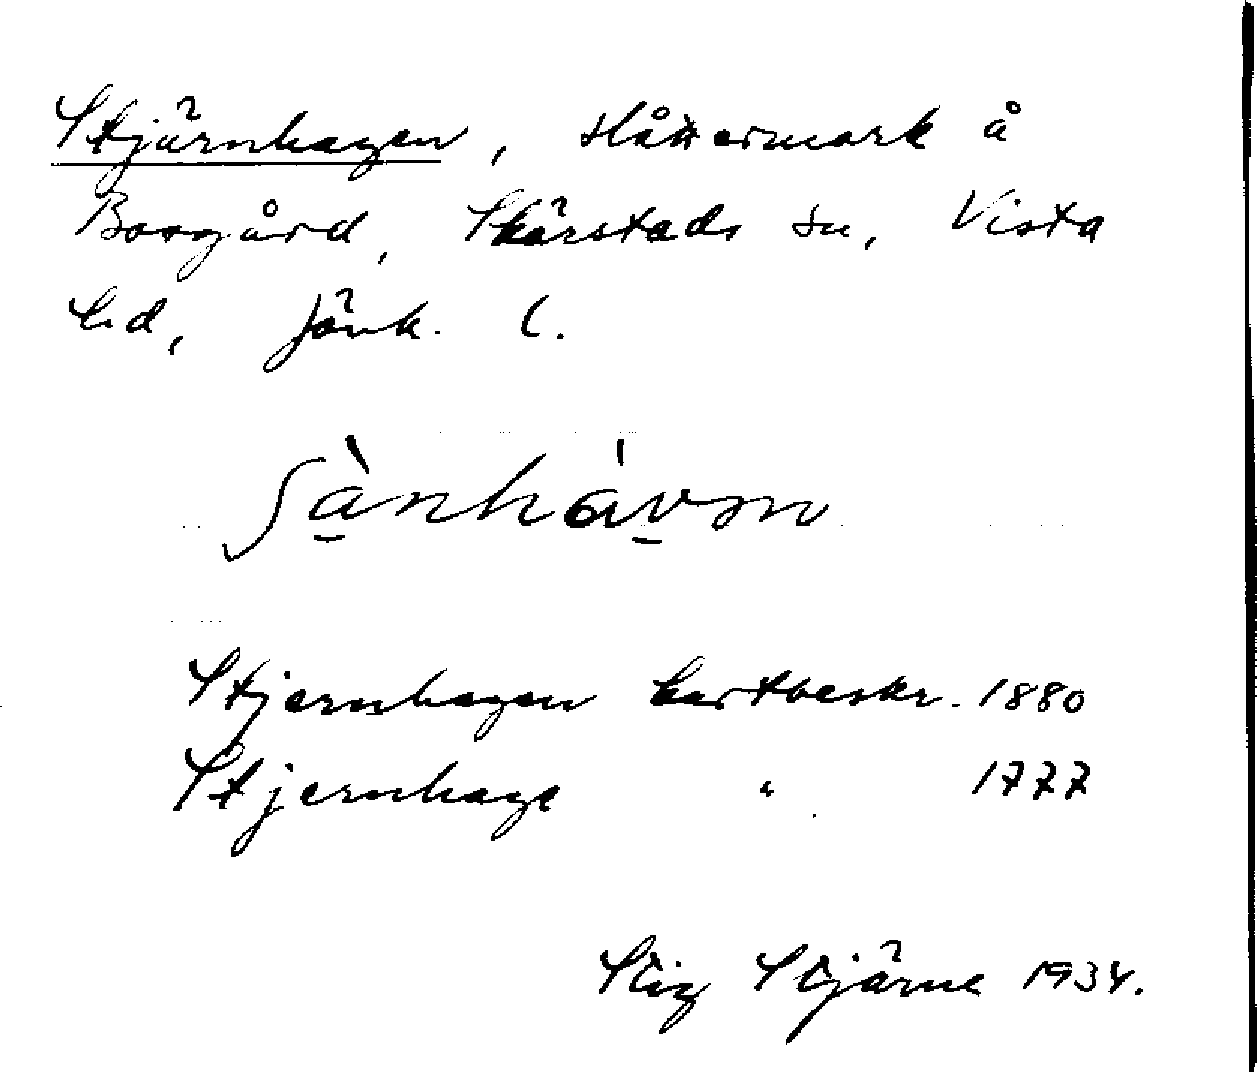 Stjärnhagen, slåttermark å
Borgård, Skärstads sn, Vista
hd, Jönk. l.
ʃànhávən
Stjernhagen kartbeskr. 1880
Stjernhage " 1777
Stig Stjärne 1934.